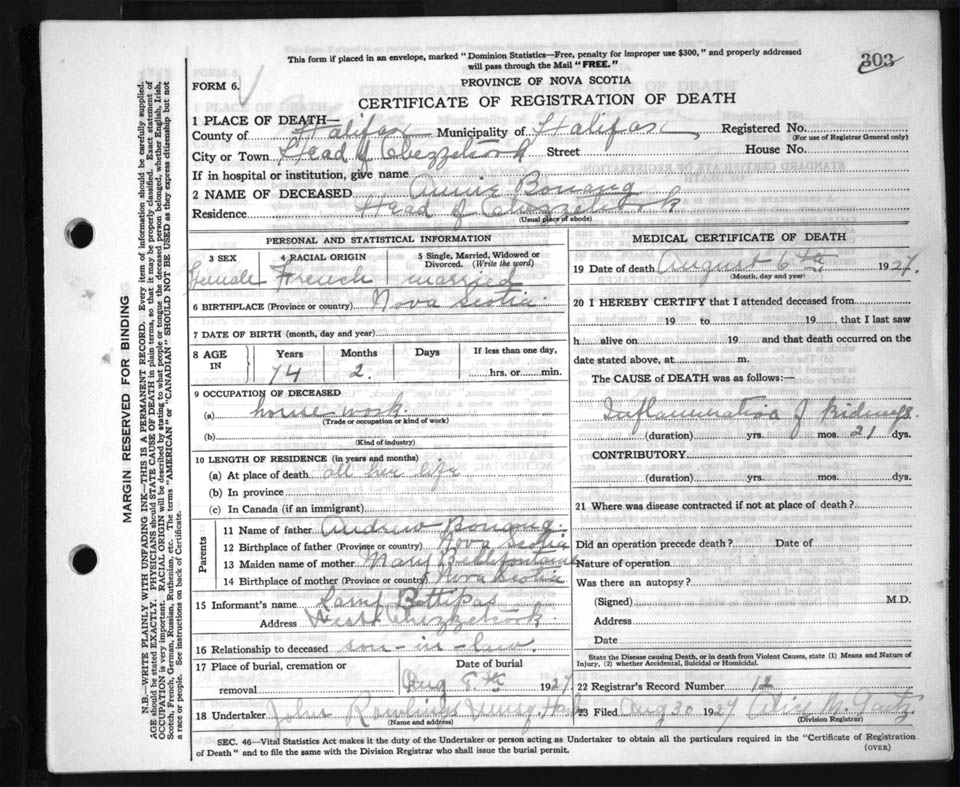 This form if placed in an envelope, marked "Dominion Statistics—Free, penalty for improper use $300," and properly addressed
will pass through the Mail "FREE."
303
FORM 6.
PROVINCE OF NOVA SCOTIA
CERTIFICATE OF REGISTRATION OF DEATH
1 PLACE OF DEATH—
County of Halifax Municipality of Halifax Registered No.
(For use of Registrar General only)
City or Town Head of Chezzetcook Street House No.
If in hospital or institution, give name
2 NAME OF DECEASED Annie Bonang
Residence Head of Chezzetcook
(Usual place of abode)
PERSONAL AND STATISTICAL INFORMATION
3 SEX 4 RACIAL ORIGIN 5 Single, Married, Widowed or
Divorced. (Write the word)
Female French married
6 BIRTHPLACE (Province or country) Nova Scotia
7 DATE OF BIRTH (month, day and year)
8 AGE IN Years Months Days If less than one day,
74 2. hrs. or min.
9 OCCUPATION OF DECEASED
(a) house work
(Trade or occupation or kind of work)
(b)
(Kind of industry)
10 LENGTH OF RESIDENCE (in years and months)
(a) At place of death all her life
(b) In province
(c) In Canada (if an immigrant)
Parents
11 Name of father Andrew Bonang
12 Birthplace of father (Province or country) Nova Scotia
13 Maiden name of mother Mary Bellefontaine
14 Birthplace of mother (Province or country) Nova Scotia
15 Informant's name
Address West Chezzetcook
16 Relationship to deceased son-in-law
17 Place of burial, cremation or Date of burial
removal Aug 8th 1927
18 Undertaker John Rowlings Musq. Harb
(Name and address)
MEDICAL CERTIFICATE OF DEATH
19 Date of death August 6th 1927.
(Month, day and year)
20 I HEREBY CERTIFY that I attended deceased from
19 to 19 that I last saw
h alive on 19 and that death occurred on the
date stated above, at m.
The CAUSE of DEATH was as follows:—
Inflammation of Kidneys
(duration) yrs. mos. 21 dys.
CONTRIBUTORY
(duration) yrs. mos. dys.
21 Where was disease contracted if not at place of death?
Did an operation precede death? Date of
Nature of operation
Was there an autopsy?
(Signed) M.D.
Address
Date
State the Disease causing Death, or in death from Violent Causes, state (1) Means and Nature of
Injury, (2) whether Accidental, Suicidal or Homicidal.
22 Registrar's Record Number 12
23 Filed Aug 30 1927 Alice M.
(Division Registrar)
SEC. 46—Vital Statistics Act makes it the duty of the Undertaker or person acting as Undertaker to obtain all the particulars required in the "Certificate of Registration
of Death" and to file the same with the Division Registrar who shall issue the burial permit.
(OVER)
MARGIN RESERVED FOR BINDING
N.B.—WRITE PLAINLY WITH UNFADING INK—THIS IS A PERMANENT RECORD. Every item of information should be carefully supplied.
AGE should be stated EXACTLY. PHYSICIANS should STATE CAUSE OF DEATH in plain terms, so that it may be properly classified. Exact statement of
OCCUPATION is very important. RACIAL ORIGIN will be described by stating to what people or tongue the deceased person belonged, whether English, Irish,
Scotch, French, German, Russian, Ruthenian, etc. The terms "AMERICAN" or "CANADIAN" SHOULD NOT BE USED as they express citizenship but not
a race or people. See instructions on back of Certificate.